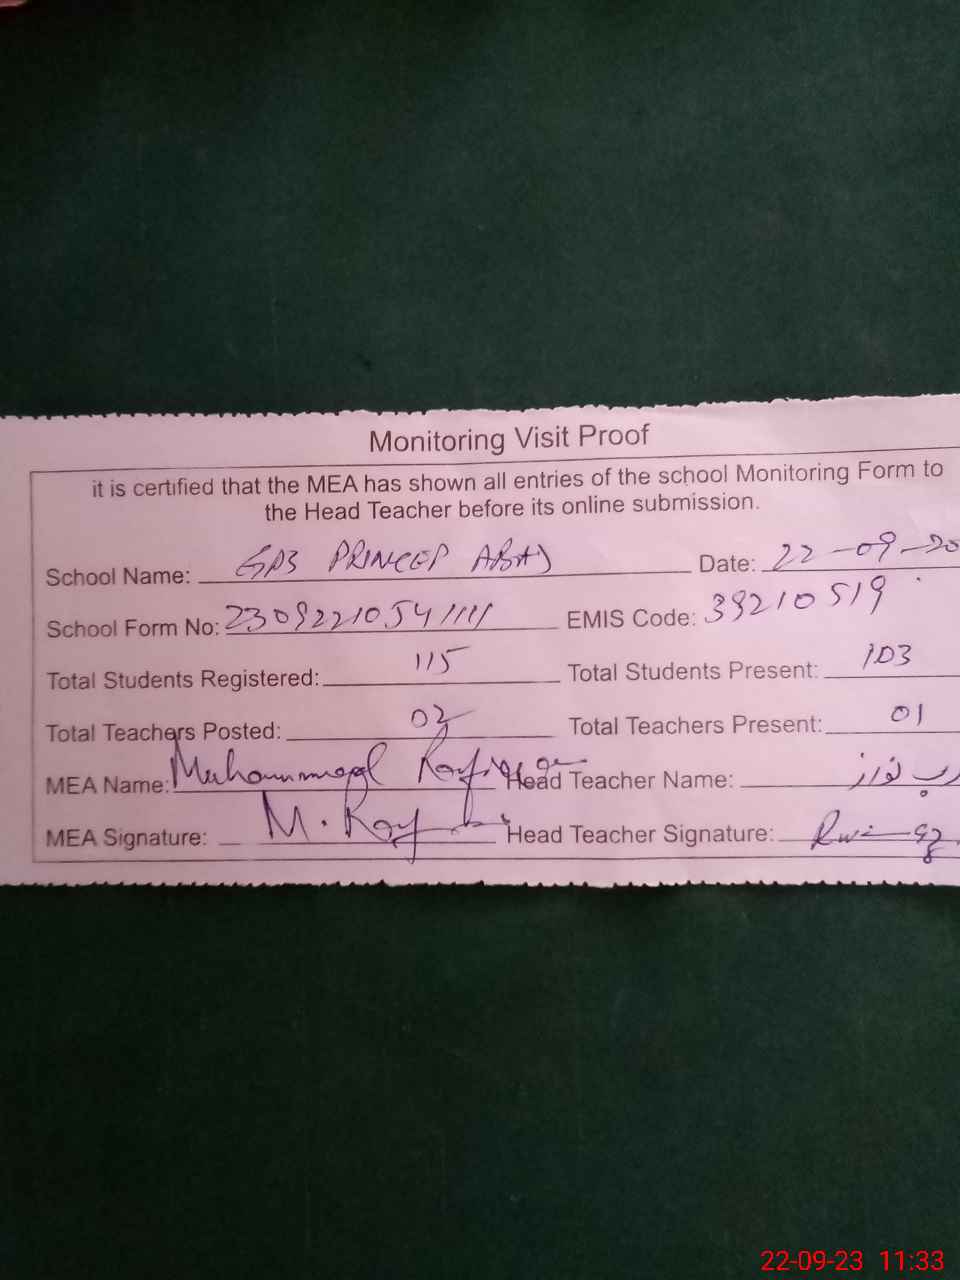 Monitoring Visit Proof
it is certified that the MEA has shown all entries of the school Monitoring Form to
the Head Teacher before its online submission.
School Name: GPS PRINCEP ABAD Date: 22-09-20
School Form No: 23092210541111 EMIS Code: 39210519
Total Students Registered: 115 Total Students Present: 103
Total Teachers Posted: 02 Total Teachers Present: 01
MEA Name: Muhammad Head Teacher Name: رب نواز
MEA Signature: M. Head Teacher Signature:
22-09-23 11:33